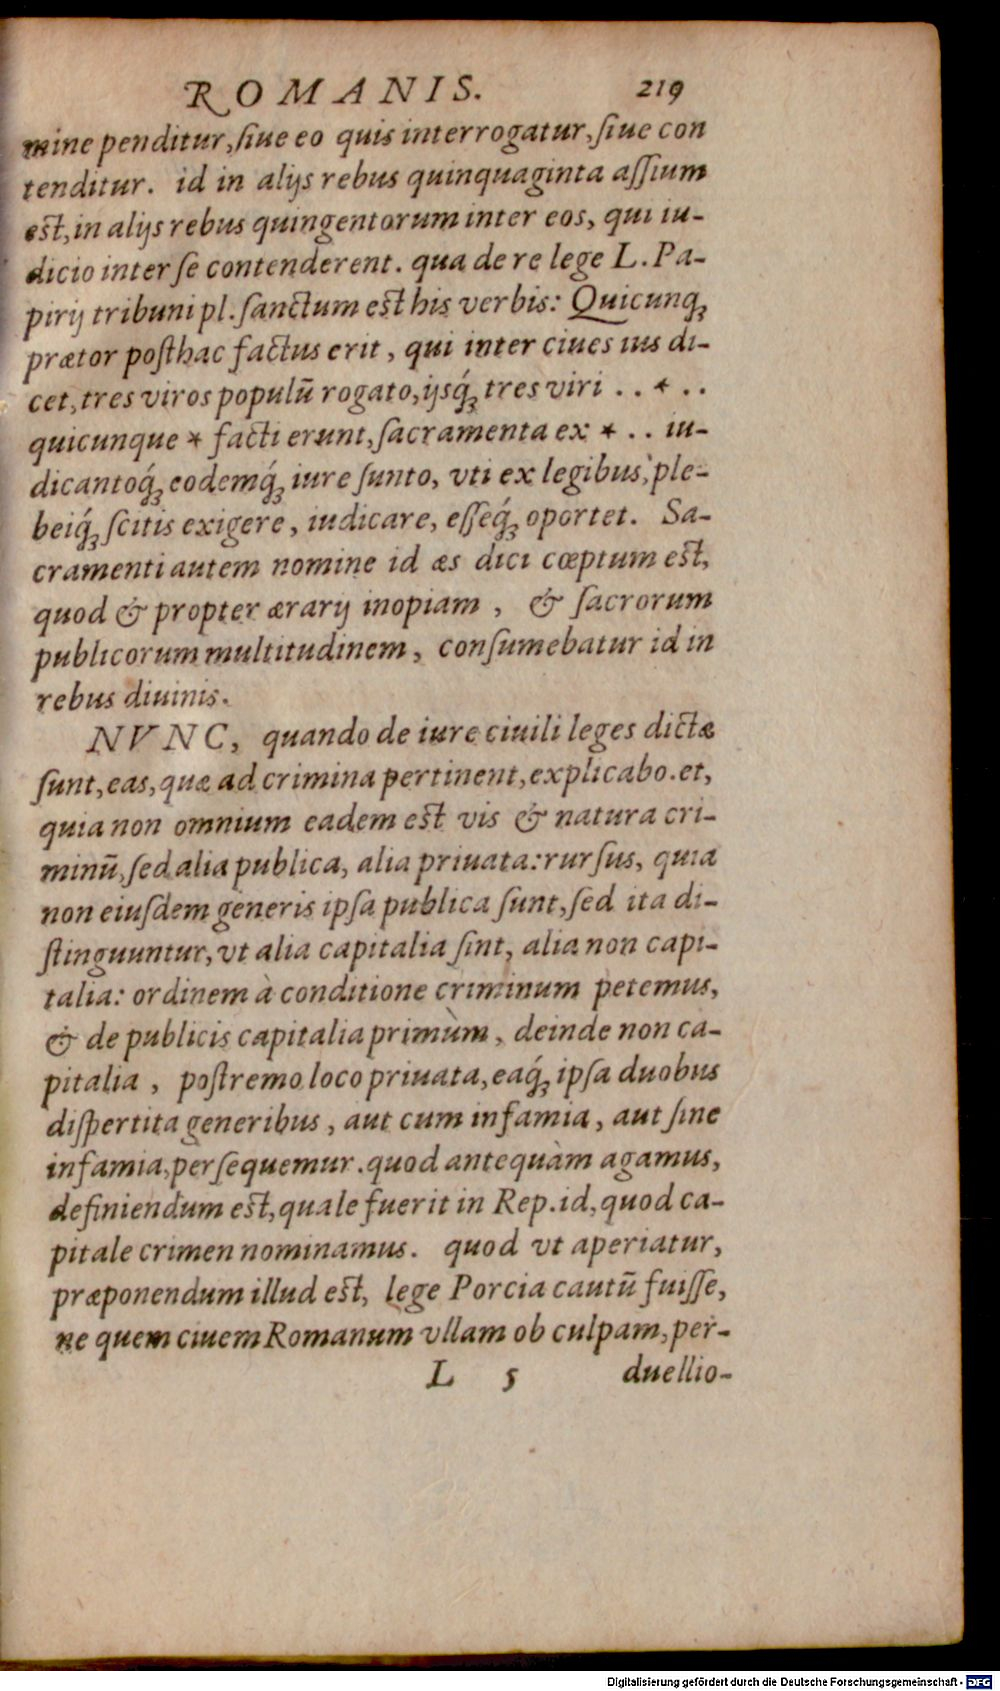 ROMANIS. 219
mine penditur, ſiue eo quis interrogatur, ſiue con
tenditur. id in alijs rebus quinquaginta aſſium
est, in alijs rebus quingentorum inter eos, qui iu-
dicio inter ſe contenderent. qua de re lege L. Pa-
pirij tribuni pl. ſanctum est his verbis: Quicunqꝫ
prætor poſthac factus erit, qui inter ciues ius di-
cet, tres viros populū rogato, ijsq́ꝫ tres viri . . * . .
quicunque * facti erunt, ſacramenta ex * . . iu-
dicantoq́ꝫ eodemq́ꝫ iure ſunto, vti ex legibus, ple-
beiq́ꝫ ſcitis exigere, iudicare, eſſeq́ꝫ oportet. Sa-
cramenti autem nomine id æs dici cœptum est,
quod & propter ærarij inopiam, & ſacrorum
publicorum multitudinem, conſumebatur id in
rebus diuinis.
NVNC, quando de iure ciuili leges dictæ
ſunt, eas, quæ ad crimina pertinent, explicabo. et,
quia non omnium eadem est vis & natura cri-
minū, ſed alia publica, alia priuata: rurſus, quia
non eiuſdem generis ipſa publica ſunt, ſed ita di-
ſtinguuntur, vt alia capitalia ſint, alia non capi-
talia: ordinem à conditione criminum petemus,
& de publicis capitalia primùm, deinde non ca-
pitalia, poſtremo loco priuata, eaq́ꝫ ipſa duobus
diſpertita generibus, aut cum infamia, aut ſine
infamia, perſequemur. quod antequàm agamus,
definiendum est, quale fuerit in Rep. id, quod ca-
pitale crimen nominamus. quod vt aperiatur,
præponendum illud est, lege Porcia cautū fuiſſe,
ne quem ciuem Romanum vllam ob culpam, per-
L 5 duellio-
Digitalisierung gefördert durch die Deutsche Forschungsgemeinschaft - DFG